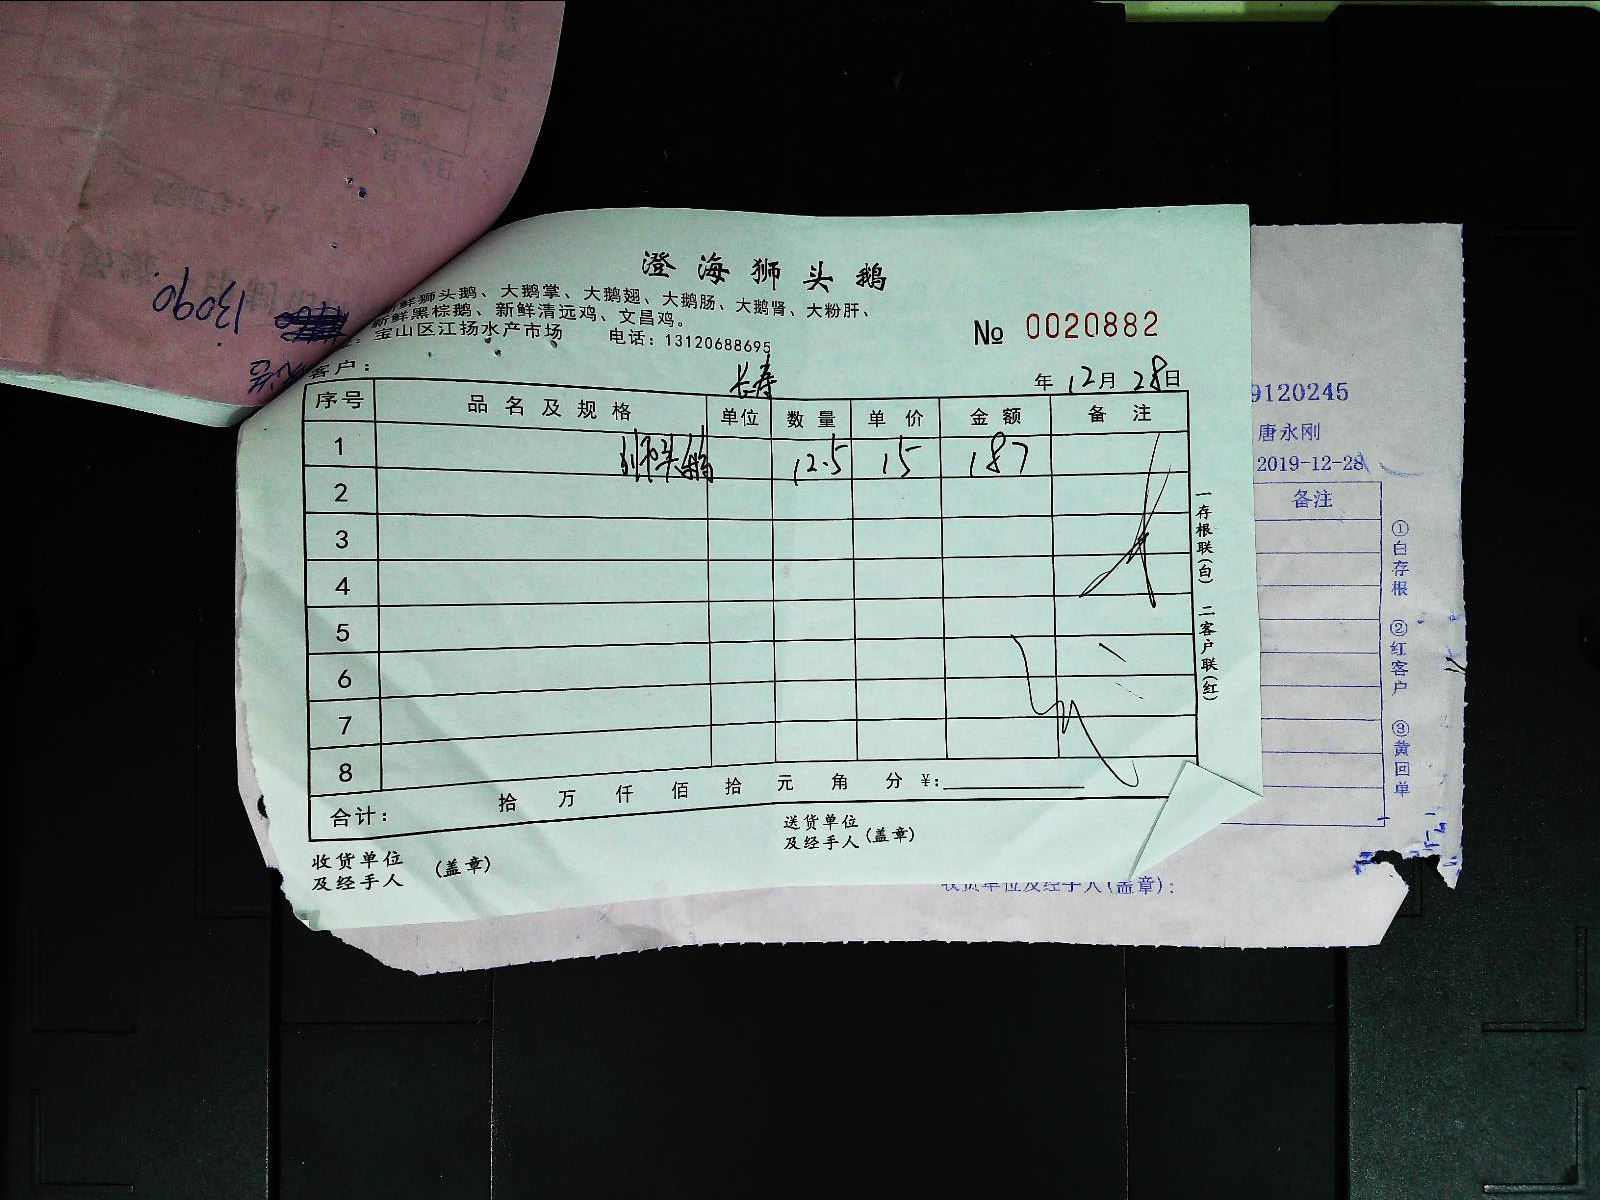 澄海狮头鹅
新鲜狮头鹅、大鹅掌、大鹅翅、大鹅肠、大鹅肾、大粉肝、
新鲜黑棕鹅、新鲜清远鸡、文昌鸡。
宝山区江扬水产市场 电话：13120688695
№ 0020882
客户： 长寿 年 12月 28日
序号 品名及规格 单位 数量 单价 金额 备注
1 狮头鹅 12.5 15 187
2
3
4
5
6
7
8
合计： 拾 万 仟 佰 拾 元 角 分 ¥：
收货单位及经手人（盖章） 送货单位及经手人（盖章）
一存根联（白） 二客户联（红）
9120245
唐永刚
2019-12-28
备注
①白存根 ②红客户 ③黄回单
收货单位及经手人（盖章）：
13090